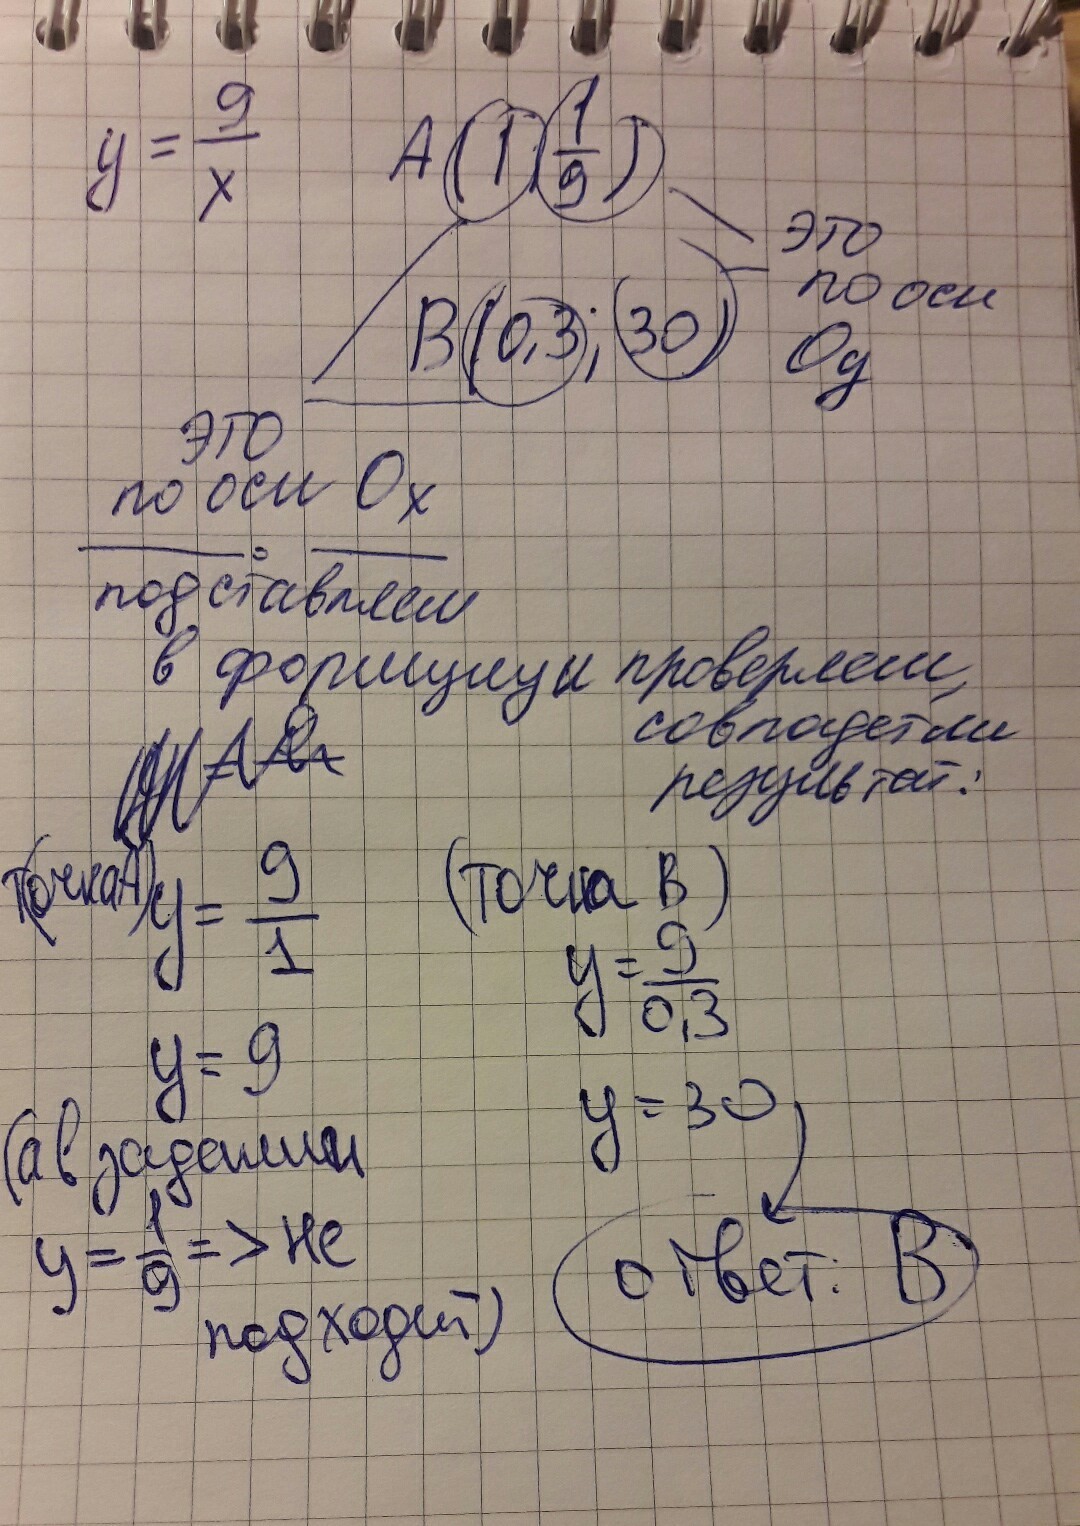 y = 9/x
A(1; 1/9)
B(0,3; 30)
это
по оси
Oy
это
по оси Ox
подставляем
в формулу и проверяем,
совпадет ли
результат:
(точка A) y = 9/1
y = 9
(а в задании
y = 1/9 => не
подходит)
(точка B)
y = 9/0,3
y = 30
ответ: B